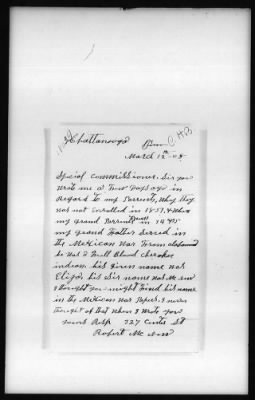 Chattanooga Tenn
March 12th - 08
Special Commissioner. Sir you
wrote me a few days ago in
regard to my Parrents, why they
was not enrolled in 1851, & when
my grand Parrents
my grand Father Served in
the Mexican war from
he was a Full Blood cherokee
indian. his given name was
his Sir name was
thought you might find his name
in the Mexican war Papers. I never
thought of that when I wrote you
yours Resp. 727 St
Robert Mc